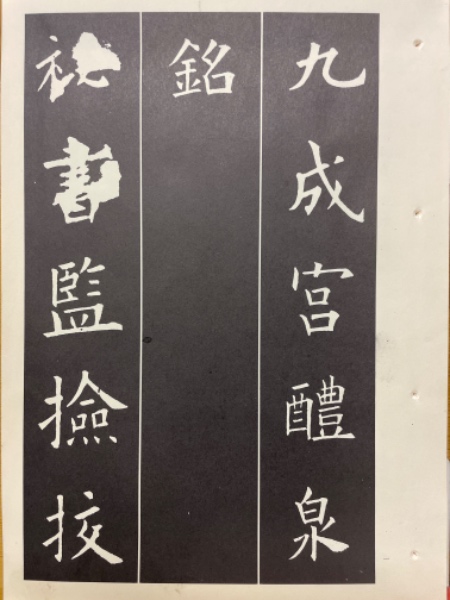 九成宮醴泉
銘
祕書監撿挍